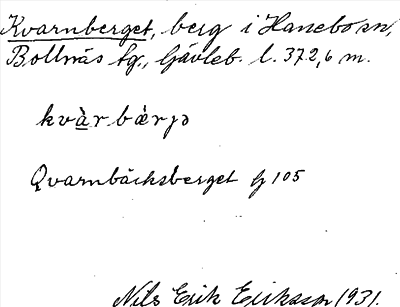 Kvarnberget, berg i Hanebo sn,
Bollnäs tg., Gävleb. l. 372,6 m.
kvàrbæ̀rjə
Qvarnbäcksberget g 105
Nils Erik Eriksson 1931.